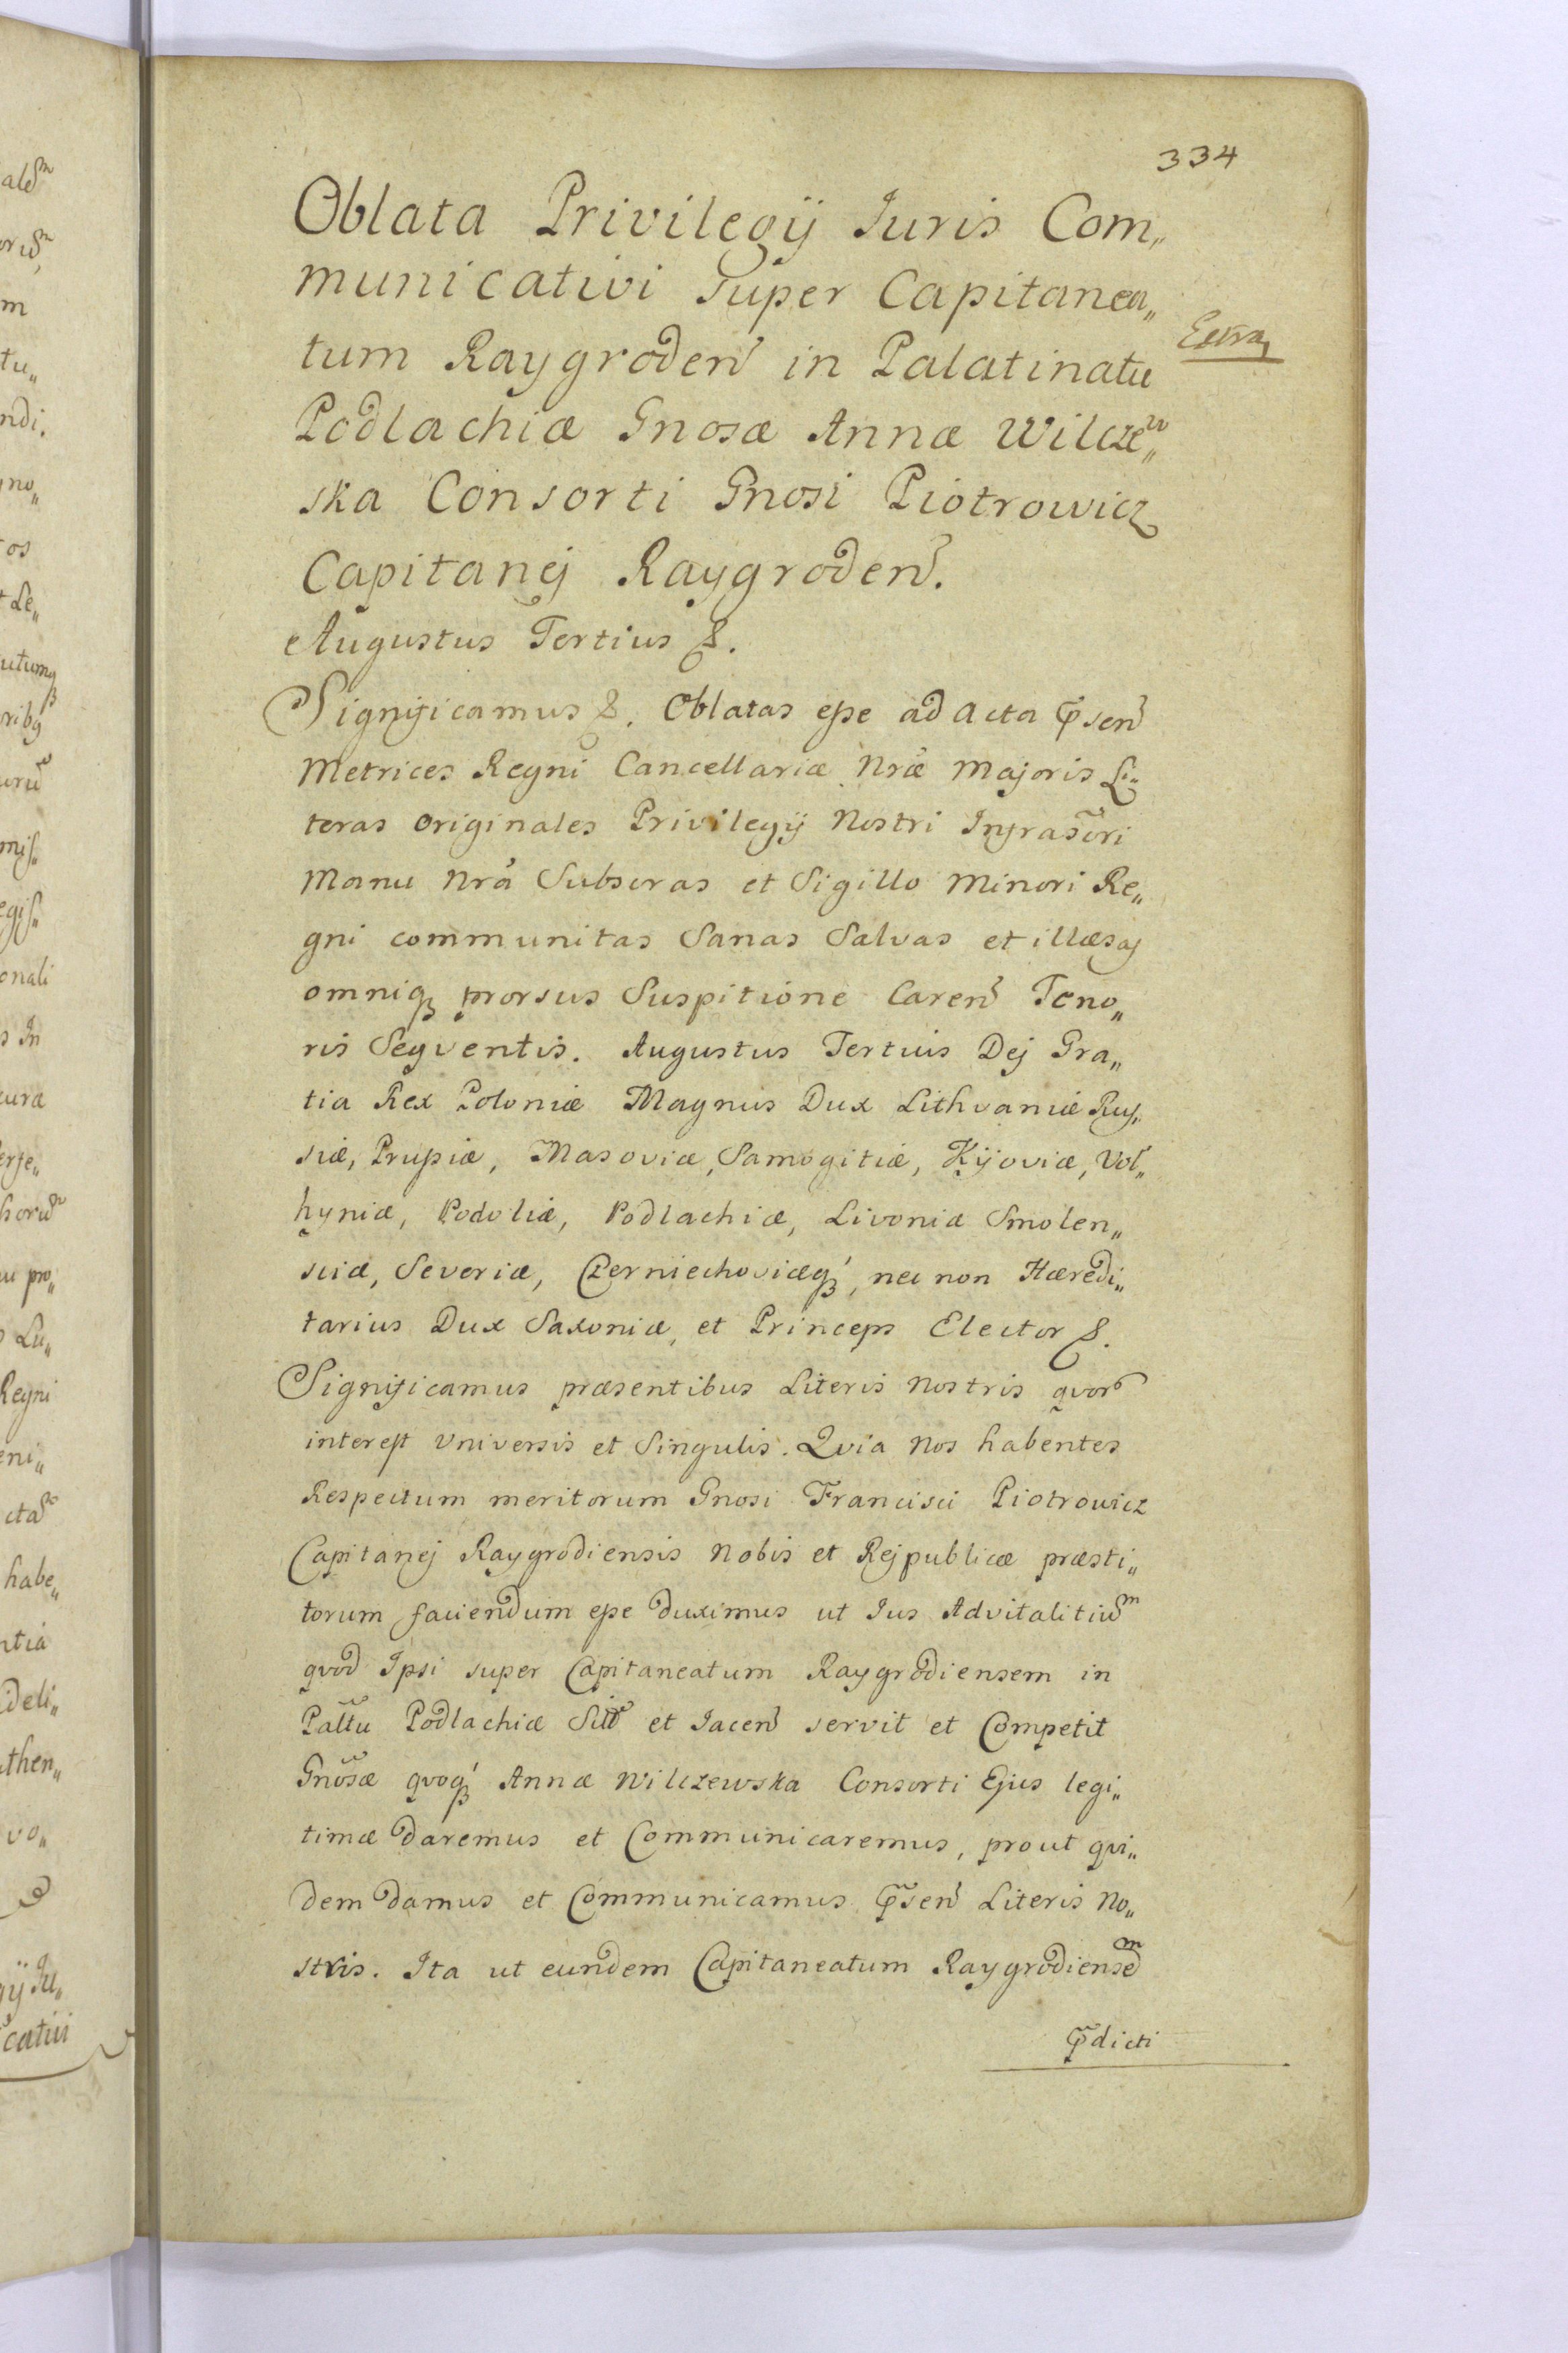 334
Oblata Privilegij Iuris Com„
municativi super Capitanea„
tum Raygroden̄ in Palatinatu
Podlachiæ Gnosæ Annæ Wilczew„
ska Consorti Gnosi Piotrowicz
Capitanej Raygroden̄.
Augustus Tertius &.
Significamus &. Oblatas esse ad Acta p̃sen̄
Metrices Regni Cancellariæ Nræ Majoris Li„
teras originales Privilegij Nostri Infrascri
Manu Nrã Subscras et Sigillo Minori Re„
gni communitas Sanas Salvas et illæsas
omniq́ prorsus Suspitione Caren̄ Teno„
ris Seqventis. Augustus Tertius Dej Gra„
tia Rex Poloniæ Magnus Dux Lithvaniæ Rus„
siæ, Prussiæ, Masoviæ, Samogitiæ, Kijoviæ, Vol„
hyniæ, Podoliæ, Podlachiæ, Livoniæ Smolen„
sciæ, Severiæ, Czerniechoviæq́, nec non Hæredi„
tarius Dux Saxoniæ, et Princeps Elector &.
Significamus præsentibus Literis Nostris qvor̃
interest Vniversis et Singulis. Qvia Nos habentes
Respectum meritorum Gnosi Francisci Piotrowicz
Capitanej Raygrodiensis Nobis et Rejpublicæ præsti„
torum faciendum esse duximus ut Ius Advitalitium
qvod Ipsi super Capitaneatum Raygrodiensem in
Paltũ Podlachiæ Sit̃ et Iacen̄ servit et Competit
Gnõsæ qvoq́ Annæ Wilczewska Consorti Ejus legi„
timæ daremus et Communicaremus, prout qvi„
dem damus et Communicamus p̃sen̄ Literis No„
stris. Ita ut eundem Capitaneatum Raygrodiensem
p̃dicti